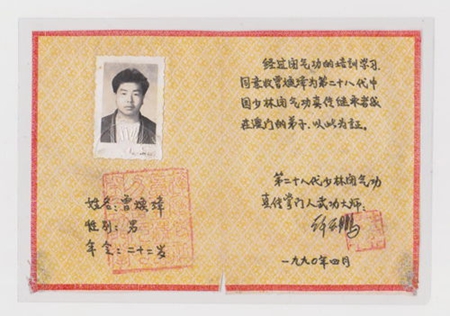 姓名:曹焕璋
性别:男
年令:二十二岁
经过闭气功的培训学习,
同意收曹焕璋为第二十八代中
国少林闭气功真传继承者我
在澳门的弟子,以此为证。
第二十八代少林闭气功
真传掌门人武功大师:
鹏
一九九〇年四月